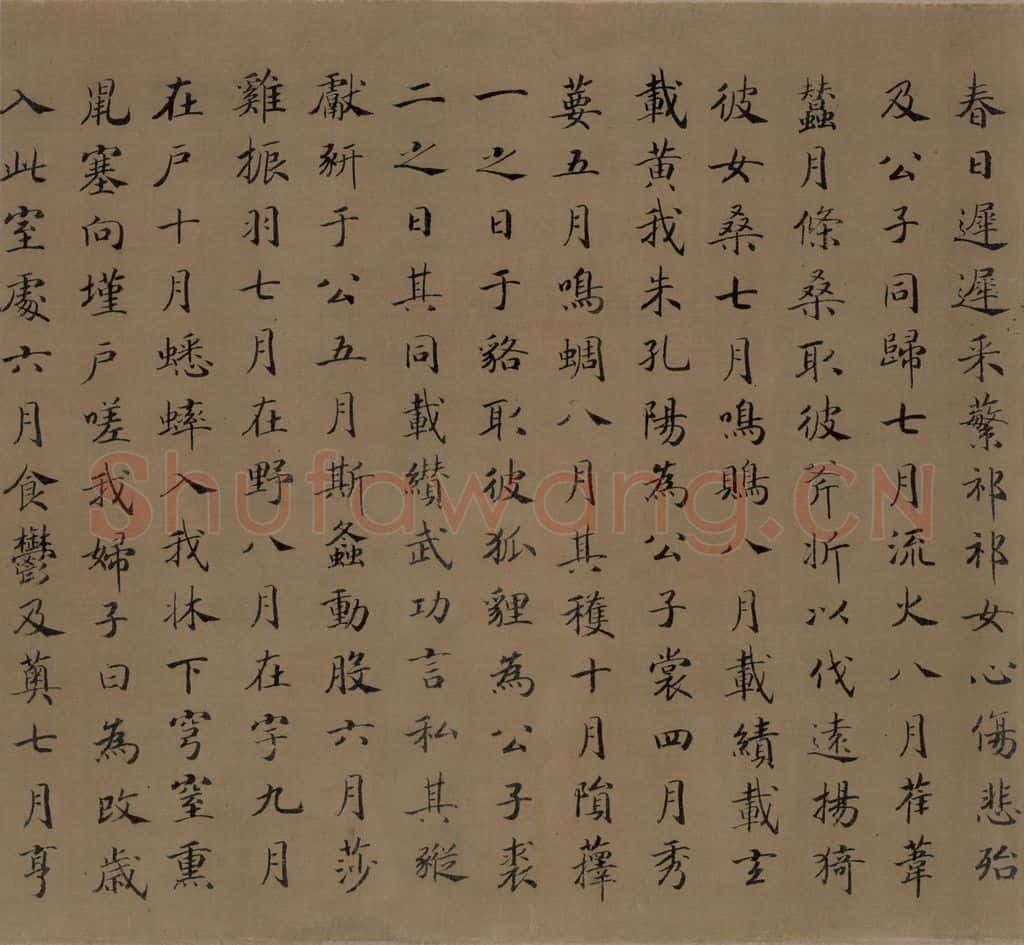 春日遲遲采蘩祁祁女心傷悲殆
及公子同歸七月流火八月萑葦
蠶月條桑取彼斧斨以伐遠揚猗
彼女桑七月鳴鵙八月載績載玄
載黃我朱孔陽為公子裳四月秀
葽五月鳴蜩八月其穫十月隕蘀
一之日于貉取彼狐貍為公子裘
二之日其同載纘武功言私其豵
獻豜于公五月斯螽動股六月莎
雞振羽七月在野八月在宇九月
在戶十月蟋蟀入我牀下穹窒熏
鼠塞向墐戶嗟我婦子曰為改歲
入此室處六月食鬱及薁七月亨
Shufawang.CN